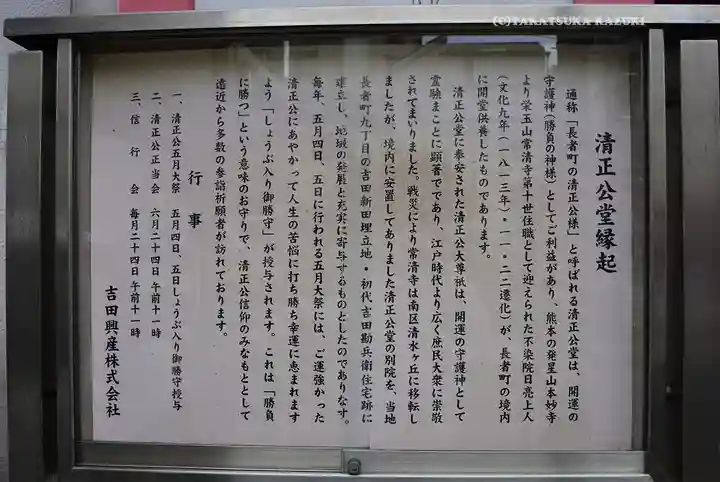 (C)TAKATSUKA KAZUKI
清正公堂縁起
通称「長者町の清正公様」と呼ばれる清正公堂は、開運の
守護神(勝負の神様)としてご利益があり、熊本の発星山本妙寺
より栄玉山常清寺第十世住職として迎えられた不染院日亮上人
(文化九年(一八一三年)・一一・二二遷化)が、長者町の境内
に開堂供養したものであります。
清正公堂に奉安された清正公大尊祇は、開運の守護神として
霊験まことに顕著でであり、江戸時代より広く庶民大衆に崇敬
されてまいりました。戦災により常清寺は南区清水ヶ丘に移転し
ましたが、境内に安置してありました清正公堂の別院を、当地
長者町九丁目の吉田新田埋立地・初代吉田勘兵衛住宅跡に
建立し、地域の発展と充実に寄与するものとしたのでありなす。
毎年、五月四日、五日に行われる五月大祭には、ご運強かった
清正公にあやかって人生の苦悩に打ち勝ち幸運に恵まれます
よう「しょうぶ入り御勝守」が授与されます。これは「勝負
に勝つ」という意味のお守りで、清正公信仰のみなもととして
遠近から多数の参詣祈願者が訪れております。
行事
一、清正公五月大祭 五月四日、五日しょうぶ入り御勝守授与
二、清正公正当会 六月二十四日 午前十一時
三、信行会 毎月二十四日 午前十一時
吉田興産株式会社